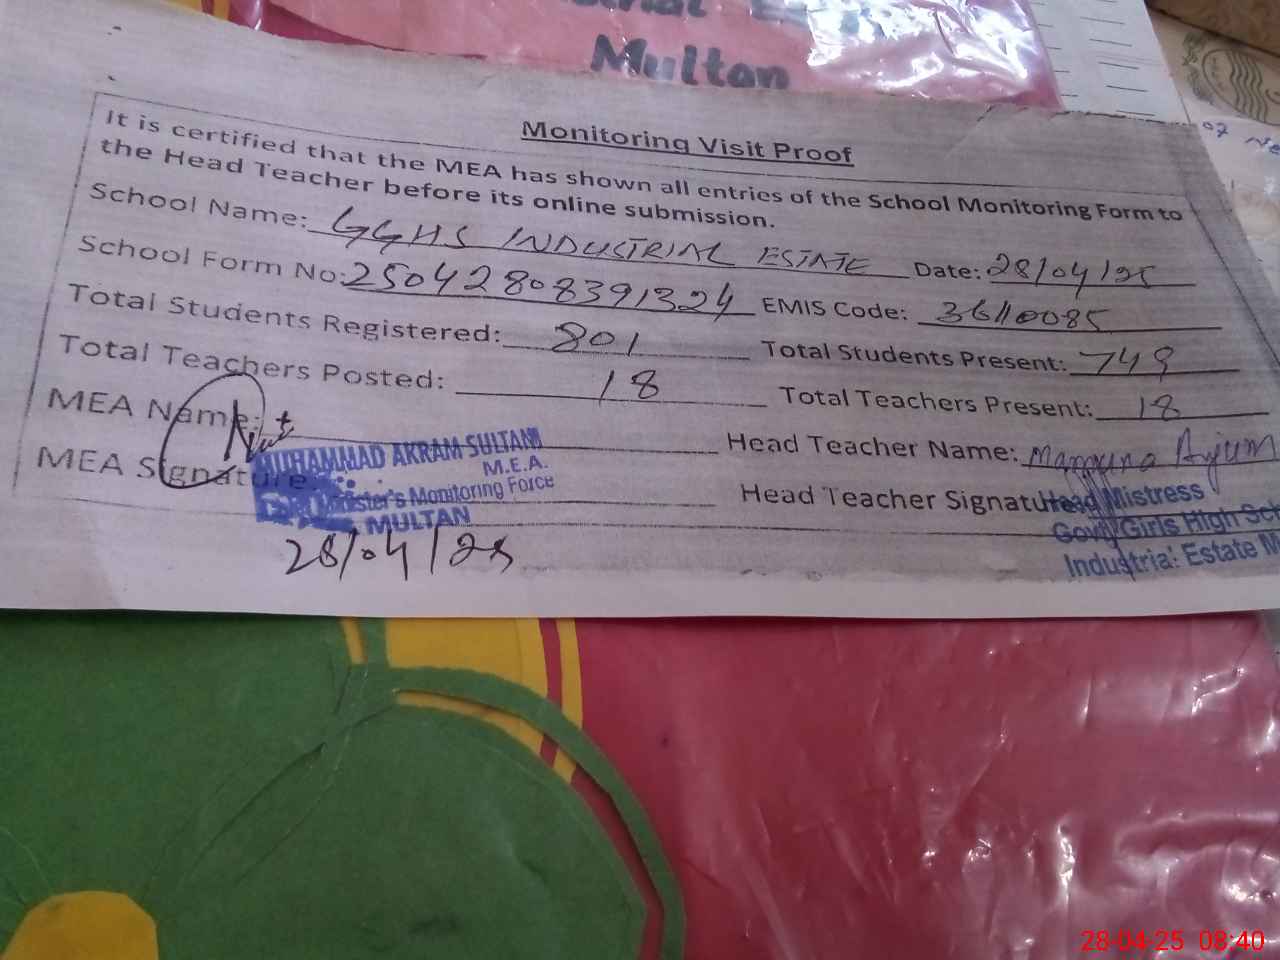 Multan
Monitoring Visit Proof
It is certified that the MEA has shown all entries of the School Monitoring Form to
the Head Teacher before its online submission.
School Name: GGHS INDUSTRIAL ESTATE Date: 28/04/25
School Form No: 25042808391324 EMIS Code: 36110085
Total Students Registered: 801 Total Students Present: 749
Total Teachers Posted: 18 Total Teachers Present: 18
MEA Name: Head Teacher Name: Mamuna Anjum
MEA Signature Head Teacher Signature
MUHAMMAD AKRAM SULTANI
M.E.A.
Minister's Monitoring Force
MULTAN
28/04/25
Head Mistress
Govt Girls High Sch
Industrial Estate M
28-04-25 08:40